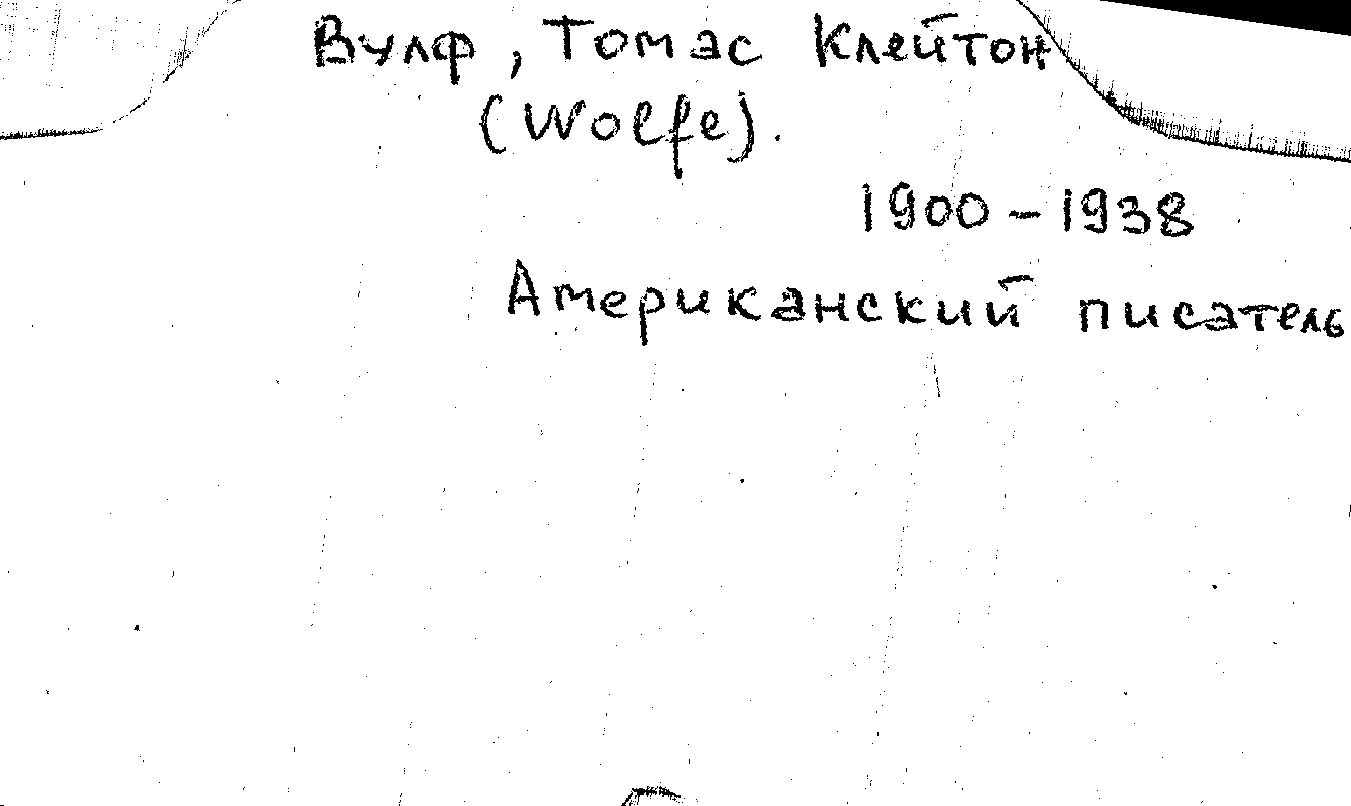 Вулф, Томас Клейтон
(Wolfe).
1900 – 1938
Американский писатель